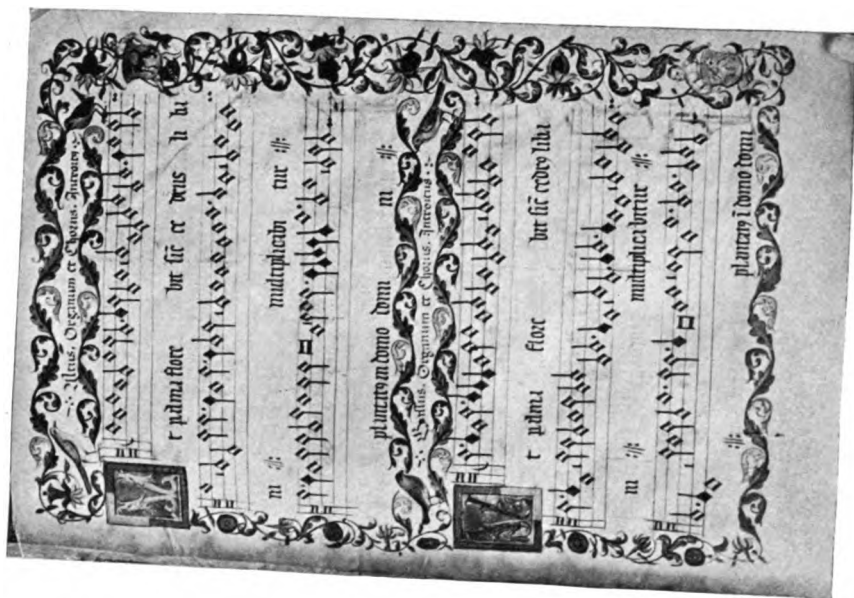 Altus. Organum et Chorus. Introitus.
t palma flore bit sic et drus li ba
ni multiplicabi tur
plantatus in domo domi ni
Bassus. Organum et Chorus. Introitus.
t palma flore bit sic cedrus liba
ni multiplicabitur
plantatus i domo domi